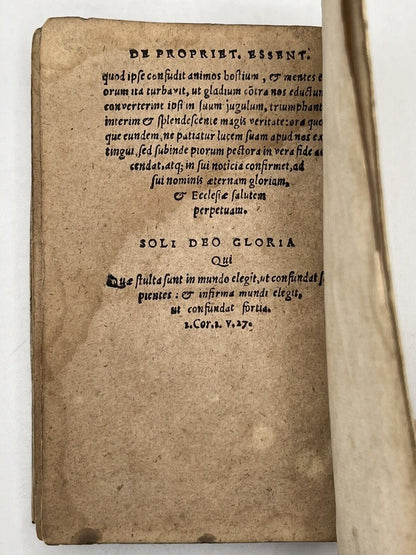 DE PROPRIET. ESSENT.
quod ipse confudit animos hostium, & mentes e
orum ita turbavit, ut gladium cōtra nos eductum
converterint ipsi in suum jugulum, triumphant
interim & splendescente magis veritate: ora quo
que eundem, ne patiatur lucem suam apud nos ex
tingui, sed subinde piorum pectora in vera fide ac
cendat, atq; in sui noticia confirmet, ad
sui nominis æternam gloriam,
& Ecclesiæ salutem
perpetuam.
SOLI DEO GLORIA
Qui
Quæ stulta sunt in mundo elegit, ut confundat
pientes: & infirma mundi elegit,
ut confundat fortia.
1. Cor. 1. v. 27.